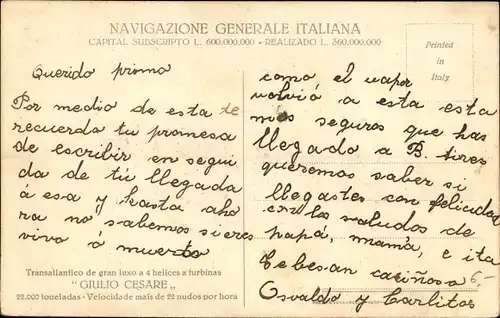 NAVIGAZIONE GENERALE ITALIANA
CAPITAL SUBSCRIPTO L. 600.000.000 - REALIZADO L. 360.000.000
Printed
in
Italy
Querido primo
Por medio de esta te
recuerdo tu promesa
de escribir en segui
da de tu llegada
á esa y hasta aho
ra no sabemos si eres
vivo o muerto
como él vapor
volvió a esta esta
mos seguros que has
llegado a B. Aires
queremos saber si
llegastes con felicidad
con los saludos de
papá, mamá, e ita
te besan cariñosa
Osvaldo y Carlitos
6.-
Transatlantico de gran luxo a 4 helices a turbinas
"GIULIO CESARE"
22.000 toneladas - Velocidade mais de 22 nudos por hora